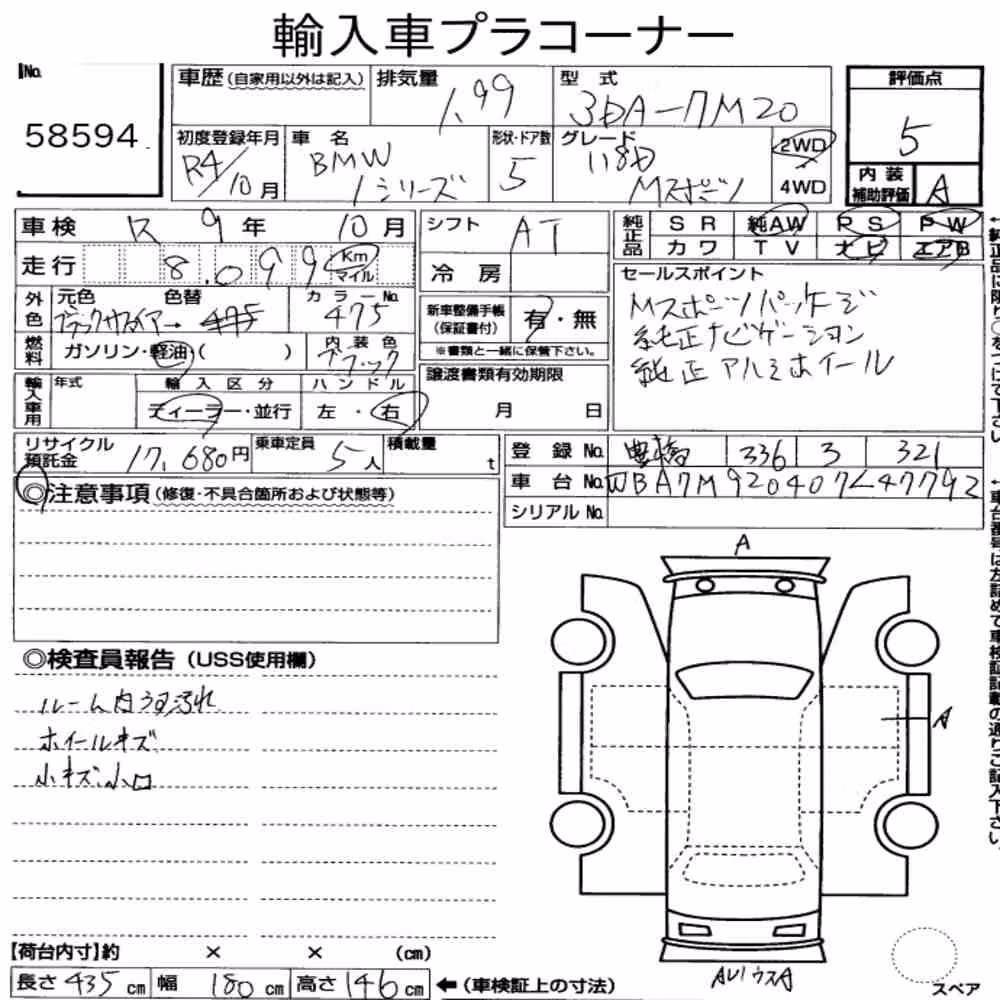 輸入車プラコーナー
No.
58594
車歴 (自家用以外は記入) 排気量 1.99 型式 3DA-7M20
評価点 5
初度登録年月 R4/10月 車名 BMW 1シリーズ 形状・ドア数 5 グレード 118D Mスポーツ 2WD 4WD
内装補助評価 A
車検 R 9年 10月 シフト AT
純正品 SR 純AW PS PW
カワ TV ナビ エアB
走行 8.099 Km マイル 冷房
セールスポイント
Mスポーツパッケージ
純正ナビゲーション
純正アルミホイール
外色 元色 ブラックサファイア→ 色替 カラーNo. 475
新車整備手帳(保証書付) 有・無
※書類と一緒に保管下さい。
燃料 ガソリン・軽油・( ) 内装色 ブラック
輸入車用 年式 輸入区分 ディーラー・並行 ハンドル 左・右
譲渡書類有効期限 月 日
リサイクル預託金 17,680円 乗車定員 5人 積載量 t
登録No. 豊橋 336 3 321
車台No. WBA7M920407L47792
シリアルNo.
◎注意事項 (修復・不具合箇所および状態等)
◎検査員報告 (USS使用欄)
ルーム内ヨゴ汚れ
ホイールキズ
小キズ、小凹
A
A
【荷台内寸】約 × × (cm)
長さ 435 cm 幅 180 cm 高さ 146 cm ←(車検証上の寸法)
AU1 ウスA
スペア